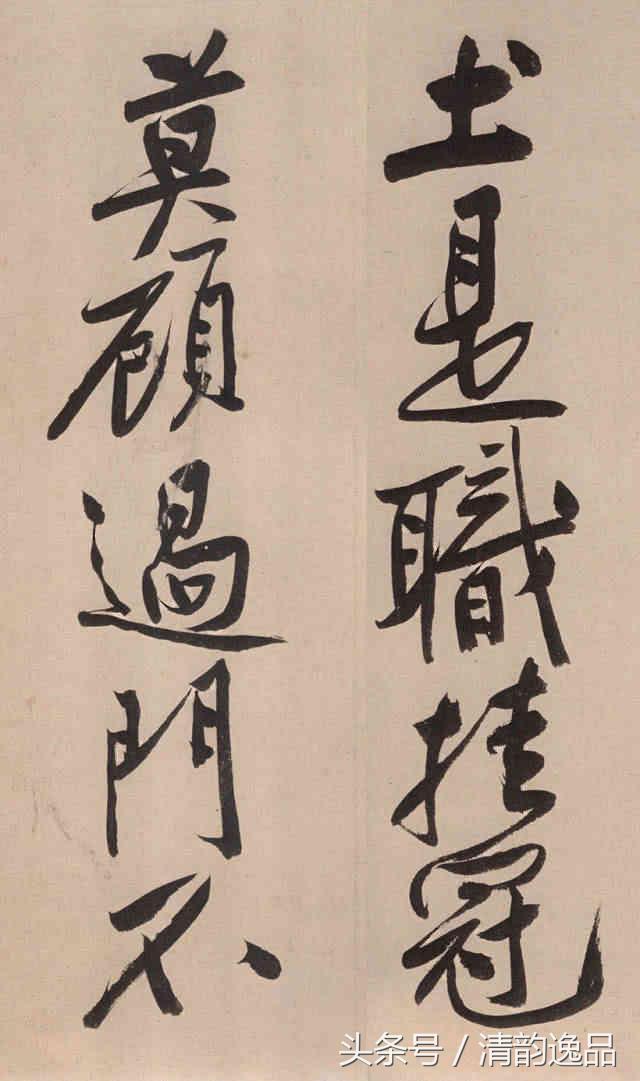 土是職掛冠
莫顧過門不
头条号 / 清韵逸品